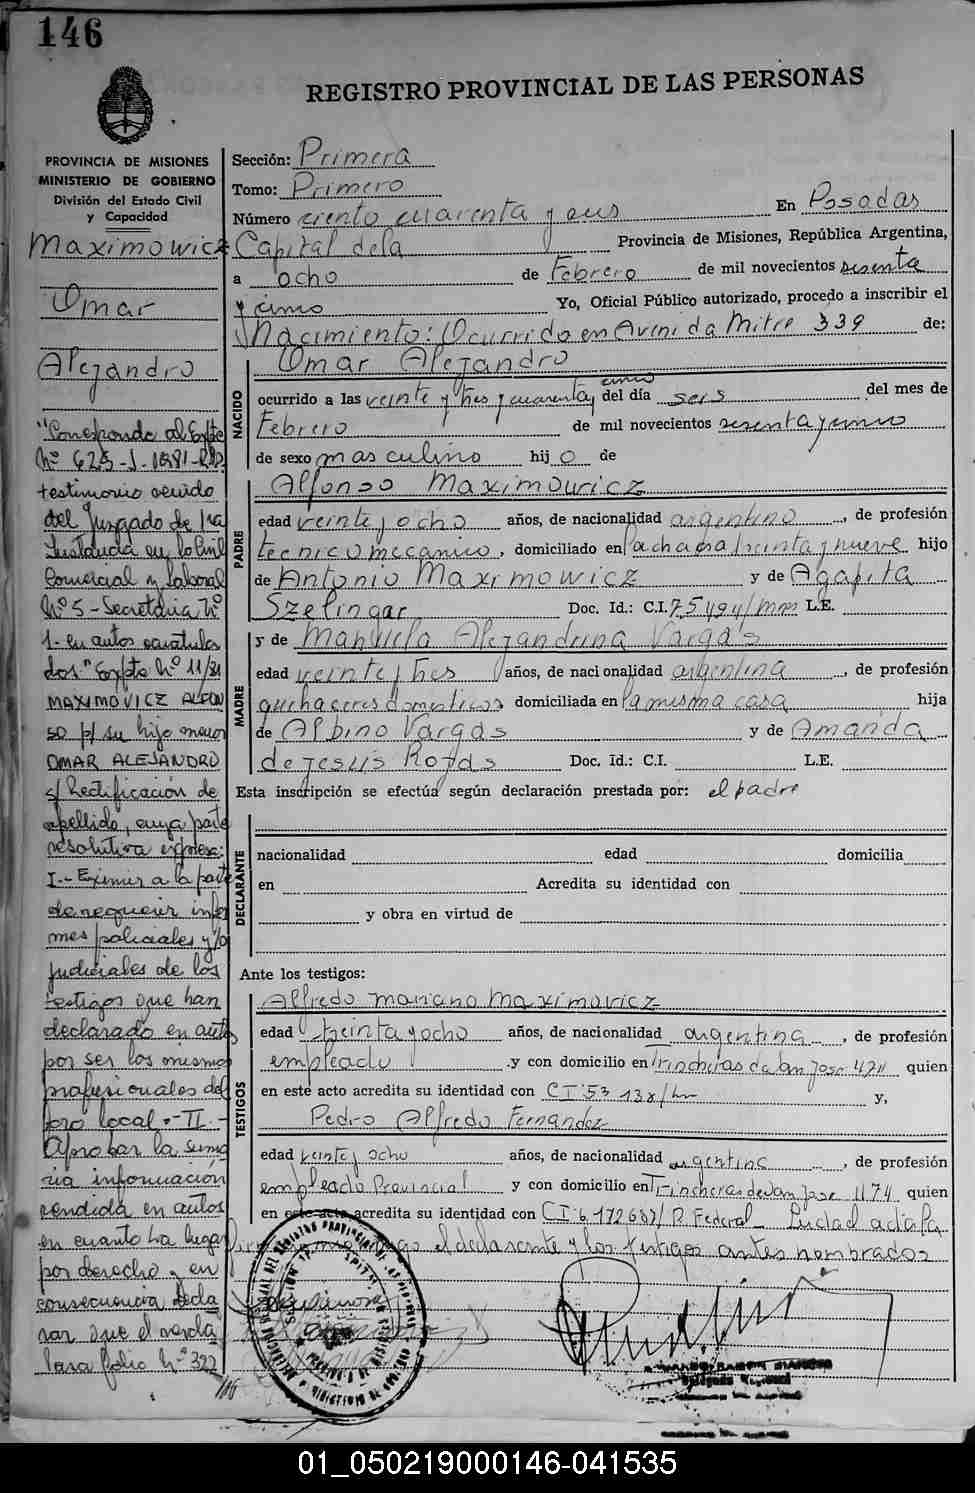 146
REGISTRO PROVINCIAL DE LAS PERSONAS
PROVINCIA DE MISIONES
MINISTERIO DE GOBIERNO
División del Estado Civil
y Capacidad
Maximowicz
Omar
Alejandro
"Corresponde al Expte
Nº 625-J-1981-R.P.P.
testimonio venido
del Juzgado de 1ra
Instancia en lo Civil
Comercial y Laboral
Nº 5 - Secretaria Nº
1 - en autos caratula
dos "Expte Nº 11/81
MAXIMOVICZ ALFON
SO p/ su hijo menor
OMAR ALEJANDRO
s/ Rectificación de
apellido, cuya parte
resolutiva expresa:
I.- Eximir a la parte
de requerir infor
mes policiales y/o
judiciales de los
testigos que han
declarado en autos
por ser los mismos
profesionales del
foro local.- II.-
Aprobar la suma
ria información
rendida en autos
en cuanto ha lugar
por derecho y en
consecuencia decla
rar que el
folio Nº 322
Sección: Primera
Tomo: Primero
Número ciento cuarenta y seis En Posadas
Capital de la Provincia de Misiones, República Argentina,
a ocho de Febrero de mil novecientos sesenta
y cinco Yo, Oficial Público autorizado, procedo a inscribir el
Nacimiento: Ocurrido en Avenida Mitre 339 de:
Omar Alejandro
NACIDO
cinco
ocurrido a las veinte y tres y cuarenta y del día seis del mes de
Febrero de mil novecientos sesenta y cinco
de sexo masculino hijo de
Alfonso Maximowicz
PADRE
edad veinte y ocho años, de nacionalidad argentino, de profesión
tecnico mecanico, domiciliado en Pachapa treinta y nueve hijo
de Antonio Maximowicz y de Agapita
Szelingar Doc. Id.: C.I. 75494/mm L.E.
y de Manuela Alejandrina Vargas
MADRE
edad veinte y tres años, de nacionalidad argentina, de profesión
quehaceres domesticos domiciliada en la misma casa hija
de Albino Vargas y de Amanda
de Jesús Rojas Doc. Id.: C.I. L.E.
Esta inscripción se efectúa según declaración prestada por: el padre
DECLARANTE
nacionalidad edad domicilia
en Acredita su identidad con
y obra en virtud de
Ante los testigos:
Alfredo Mariano Maximovicz
TESTIGOS
edad treinta y ocho años, de nacionalidad argentina, de profesión
empleado y con domicilio en Trincheras de San Jose 4211 quien
en este acto acredita su identidad con CI 53138/m y,
Pedro Alfredo Fernandez
edad veinte y ocho años, de nacionalidad argentina, de profesión
empleado Provincial y con domicilio en Trincheras de San Jose 1174 quien
en este acto acredita su identidad con CI 6172687/P. Federal - Leida el acta la
el declarante y los testigos antes nombrados
01_050219000146-041535